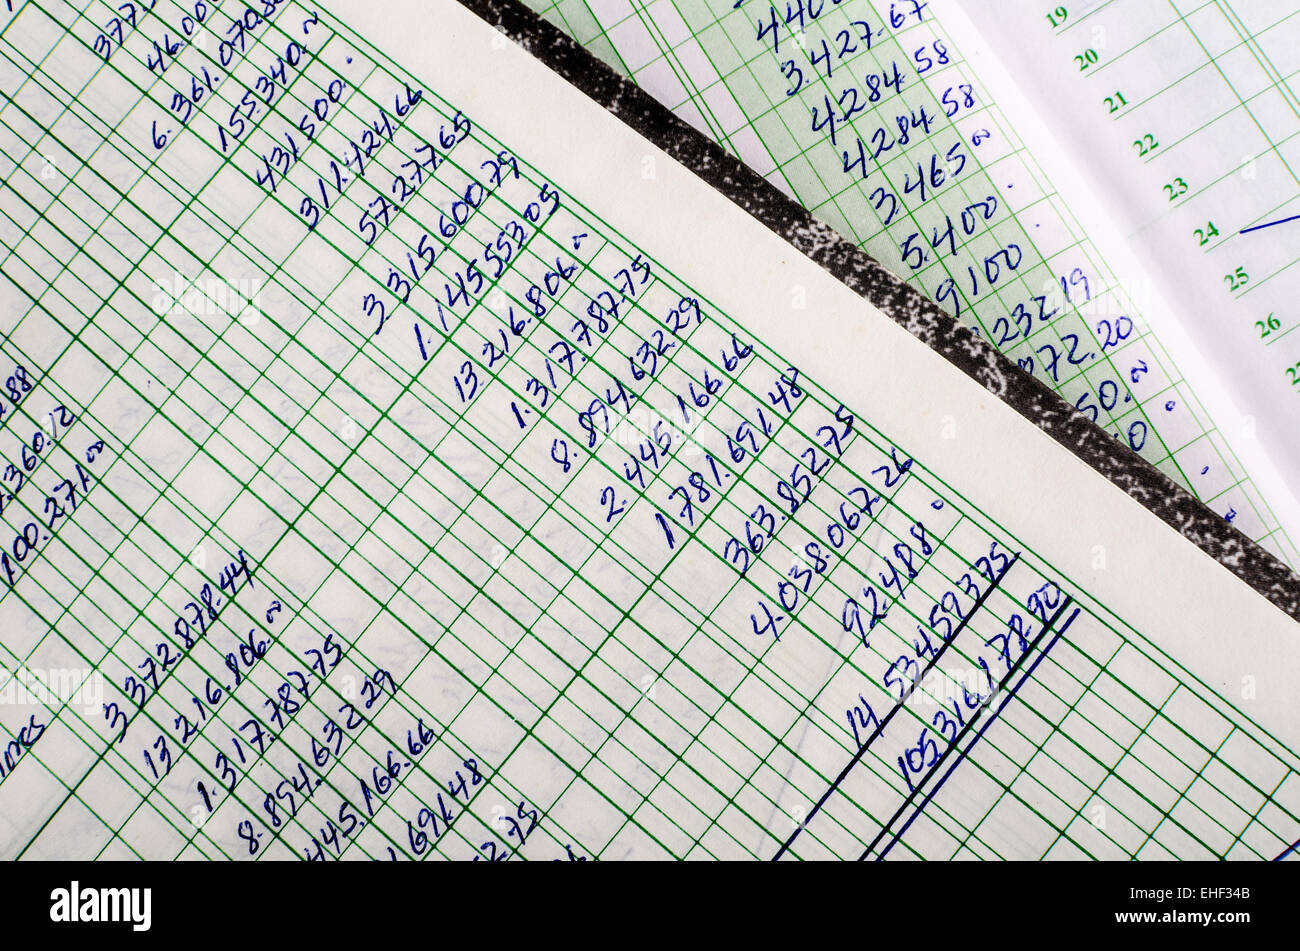 46.000
6.361.070.88
155340.~
431.500.
311.424.66
57.277.65
3315.600.79
1.145.553.05
13.216.806.~
1.317.787.75
8.894.632.29
2.445.166.66
1781.691.48
363.852.75
4.038.067.26
92.488.
14 534.592.75
105.316.178.90
.360.12
100.271.00
3372.878.44
13 216.806.~
1.317.787.75
8.894.632.29
445.166.66
.691.48
52.75
3.427.67
4.284.58
4284.58
3.465~
5.400
9100
232.19
372.20
50.~
19
20
21
22
23
24
25
26
alamy
alamy stock photo
EHF34B
www.alamy.com